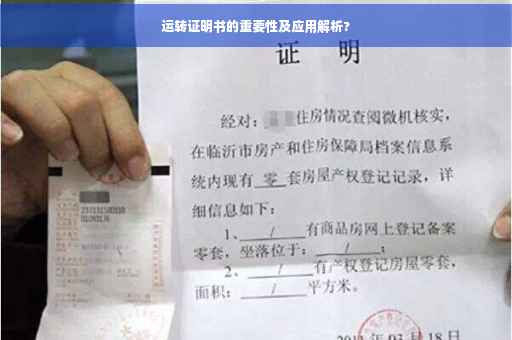 运转证明书的重要性及应用解析?
证 明
经对：住房情况查阅微机核实，
在临沂市房产和住房保障局档案信息系
统内现有 零 套房屋产权登记记录，详
细信息如下：
1、 / 有商品房网上登记备案
零套，坐落位于： / ；
2、 / 有产权登记房屋零套，
面积： / 平方米。
03月18日